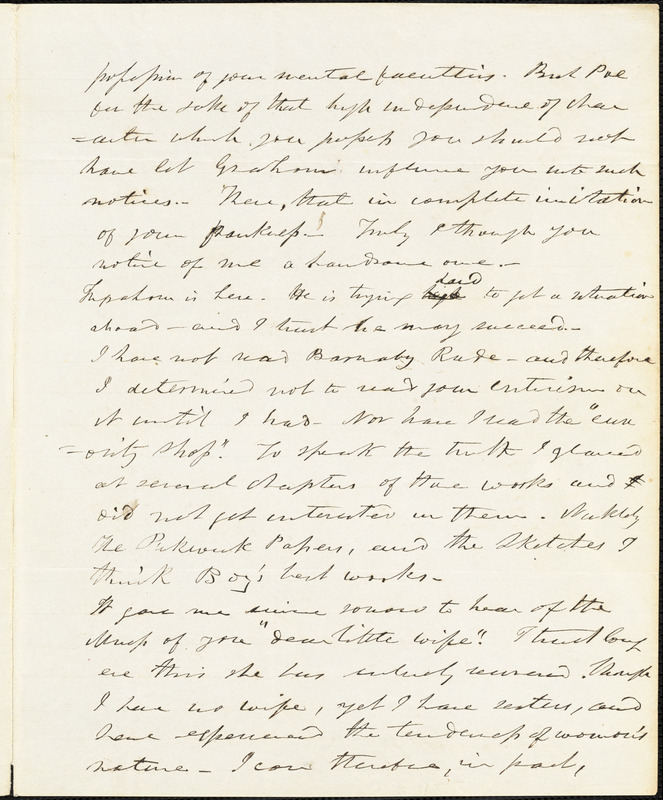 possession of your mental faculties. But Poe
for the sake of that high independence of char
=acter which you possess you should not
have let Graham influence you into such
notices.- There, that in complete imitation
of your frankness.- Truly I thought you
notice of me a handsome one.-
Ingraham is here. He is trying hard to get a situation
abroad - and I trust he may succeed.-
I have not read Barnaby Rudge - and therefore
I determined not to read your criticism on
it until I had. Nor have I read the "curi
=osity shop". To speak the truth I glanced
at several chapters of these works and
did not get interested in them. Nickleby
the Pickwick Papers, and the Sketches I
think Boz's best works -
It gave me sincere sorrow to hear of the
illness of your "dear little wife". I trust long
ere this she has entirely recovered. Though
I have no wife, yet I have sisters, and
have experienced the tenderness of woman's
nature - I can therefore, in part,